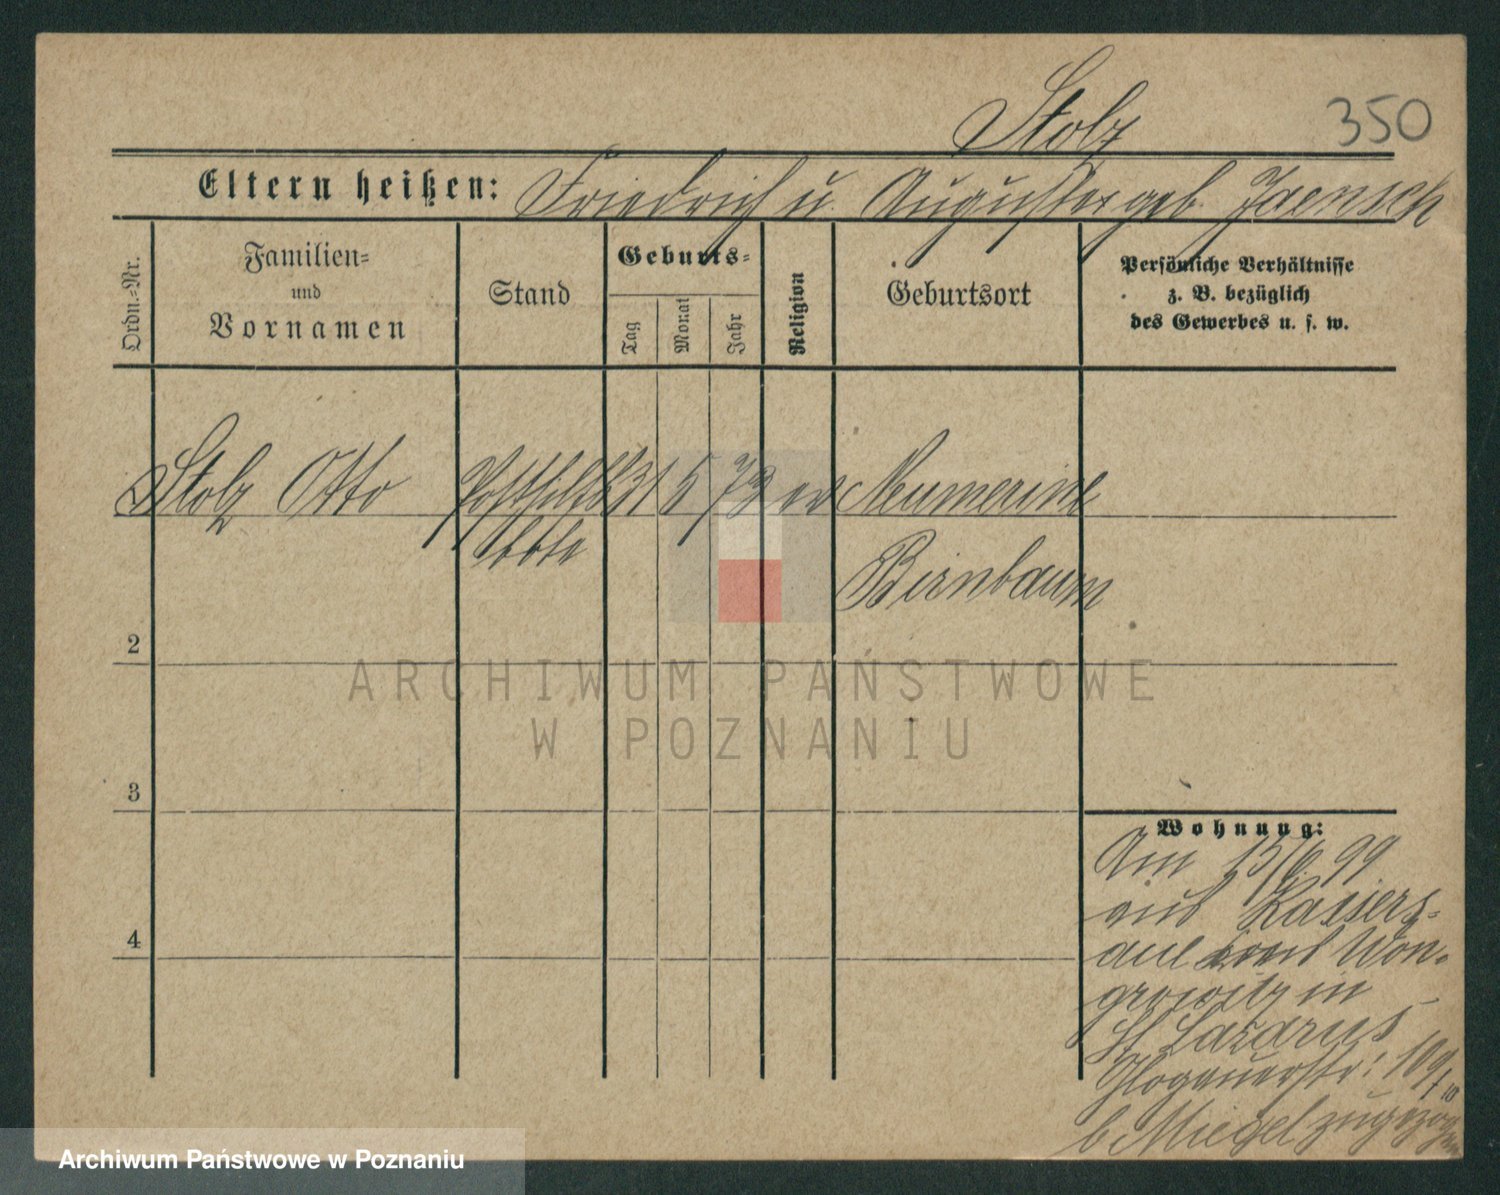 Stolz
350
Eltern heißen: Friedrich u. Auguste geb. Jaensch
Ordn.-Nr.
Familien=
und
Vornamen
Stand
Geburts=
Tag
Monat
Jahr
Religion
Geburtsort
Persönliche Verhältnisse
z. B. bezüglich
des Gewerbes u. s. w.
Stolz Otto Posthilfs 31 5 73 ev
bote
Birnbaum
2
3
4
Wohnung:
Am 15/6 99
aus Kaisers-
aue Won-
growitz in
St Lazarus
Glogauerstr: 109/10
b Miegel zugezogen
ARCHIWUM PAŃSTWOWE
W POZNANIU
Archiwum Państwowe w Poznaniu